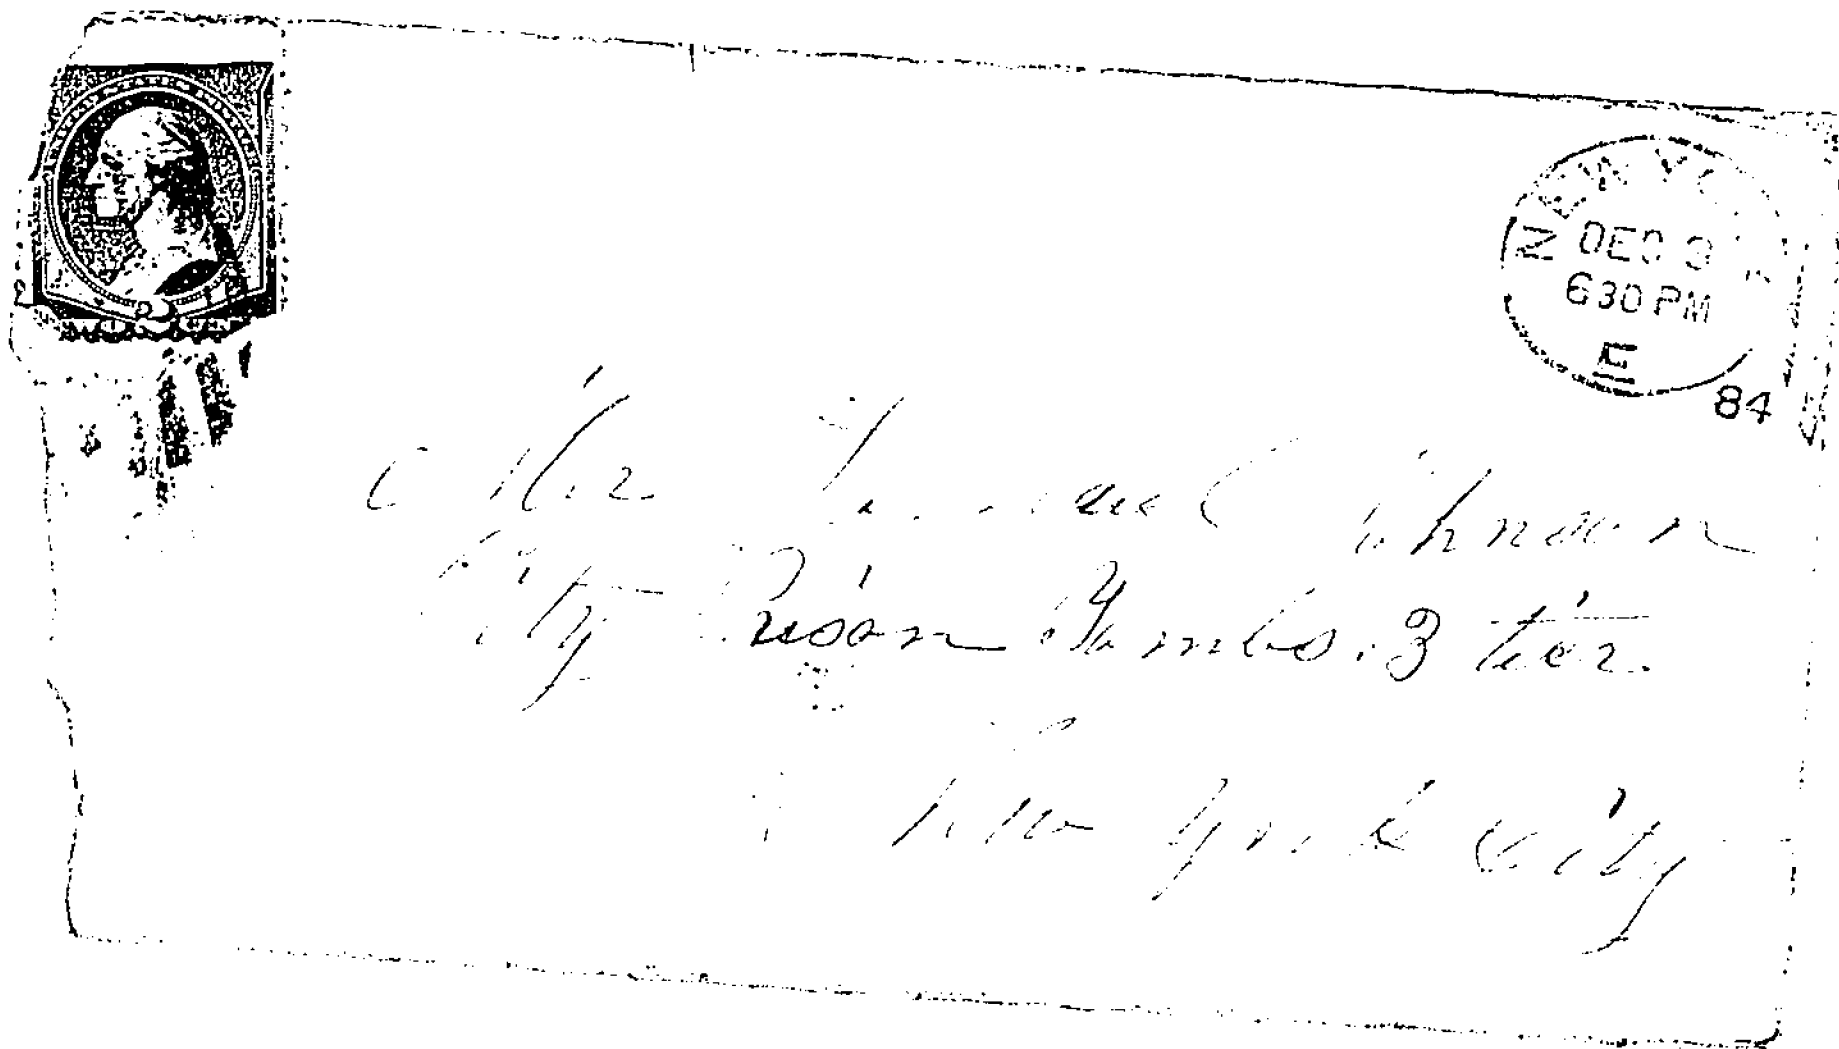 NEW YORK
DEC 3
630 PM
E
84
2
Mr
City Prison Tombs. 3 tier.
New York City